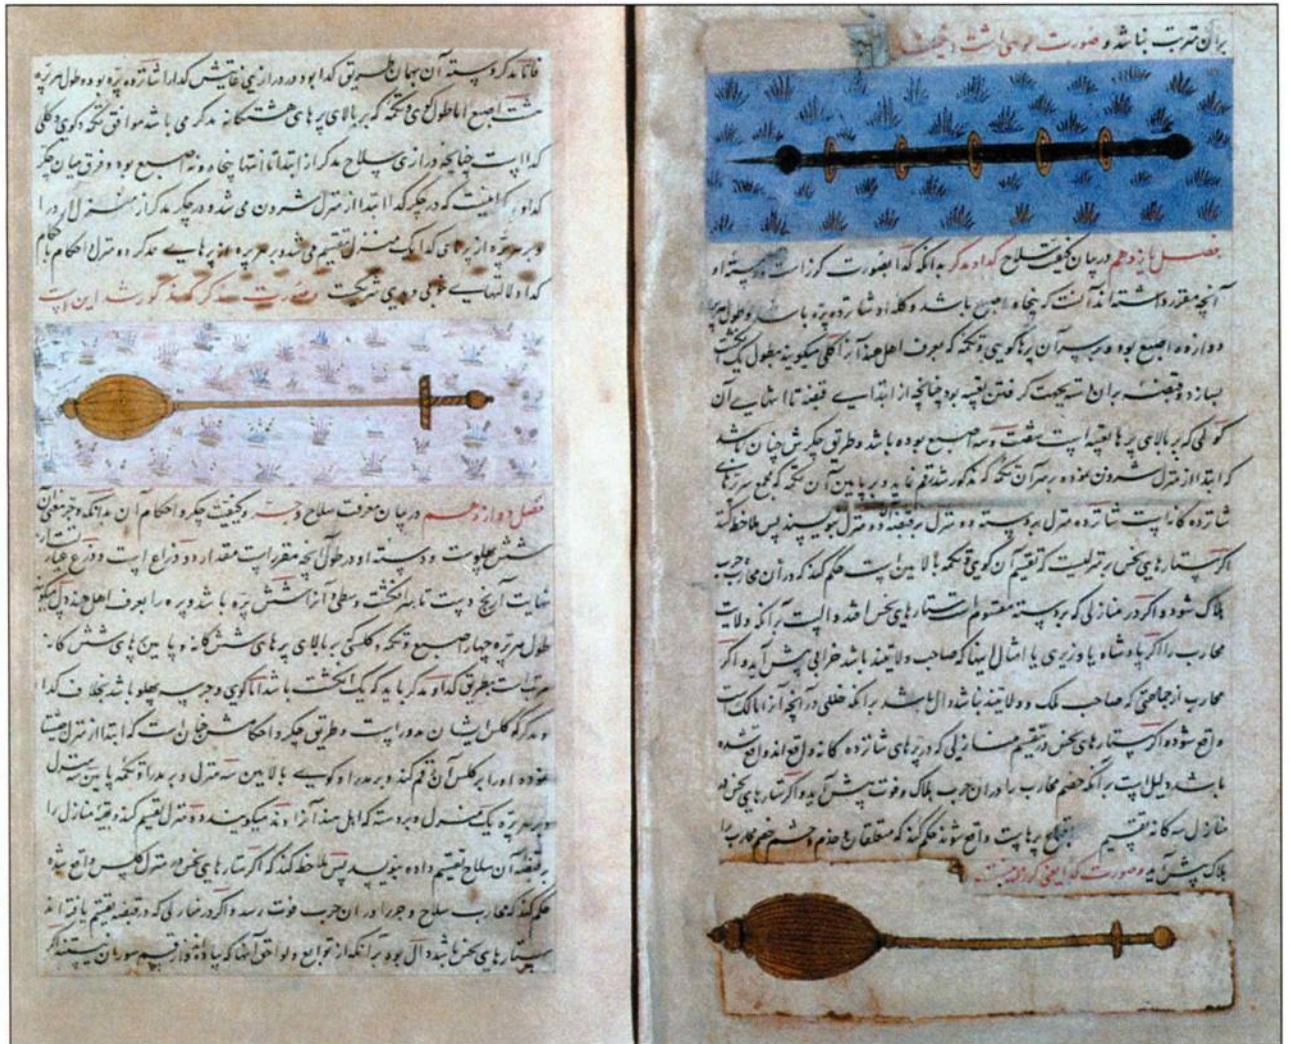 بران مترتب نباشد و صورت موسی اشت
فصل یازدهم در بیان کیفیت سلاح کدا و مدکر بدانکه کدا بصورت کرزاست و دسته او
آنچه مقرر داشته اند آنست که پنجاه اصبع باشد و کله او شانزده پره باشد و طول هر پره
دوازده اصبع بود و بر سر آن پرها کویی و تکمه که بعرف اهل هند آنرا کلی میکویند بطول یک انکشت
بسازد و قبضه بران دسته بجهت کرفتن تعبیه بود چنانچه از ابتدایے قبضه تا انتهایے آن
کویی که بر بالای پرها تعبیه است شصت و سه اصبع بوده باشد و طریق چکرش چنان باشد
که ابتدا از منزل نموده بر سر آن تکمه که مذکور شد رقم نماید و بر پایین آن تکمه که مجمع سرهای
شانزده کانه است شانزده منزل بر دسته ده منزل بر قبضه دو منزل بنویسند پس ملاحظه کند
اکر ستارهای نحس بر منزلیست که تقسیم آن کوی و تکمه بالایین است حکم کند که در آن محارب حرب
هلاک شود و اکر در منازلی که بر دسته مقسوم است ستارهای نحس افتد دالست بر آنکه ولایت
محارب را اکر پادشاه یا وزیری یا امثال اینها که صاحب ولایتند باشد خرابی پیش آید و اکر
محارب از جماعتی که صاحب ملک و ولایتند نباشد دال باشد بر آنکه خللی در آنچه آنرا مالک است
واقع شود و اکر ستارهای نحس در تقسیم منازلی که در پرهای شانزده کانه واقع اند واقع شده
باشد دلیل است بر آنکه خصم محارب را در ان حرب هلاک و فوت پیش آید و اکر ستارهای نحس در
منازل سه کانه تقسیم پرهاست واقع شوند حکم کند که متعلقان خدم و حشم خصم محارب را
هلاک پیش آید و صورت کدا یعنی کرز اینست
فاما مدکر و دسته آن بهمان طریق کدا بود در درازیی غایتش کدا را شانزده پره بوده و طول هر پره
هشت اصبع اما طول کوی و تکمه که بر بالای پرهای هشتکانه مدکر می باشد موافق تکمه و کوی و کلی
کدا است چنانچه درازی سلاح مدکر از ابتدا تا انتها پنجاه و نه اصبع بود و فرق میان چکر
کدا و اینست که در چکر کدا ابتدا از منزل می شد و در چکر مدکر از منزل
و بر هر پره از پرهای کدا یک منزل تقسیم می شد و بر هر پره از پرهایے مدکر دو منزل احکام
کدا و دلالتهایے خوبی و بدی صورت مدکر اینست
فصل دوازدهم در بیان معرفت سلاح وجر و کیفیت چکر و احکام آن بدانکه وجر
شش پهلوست و دسته او در طول آنچه مقرر است مقدار دو ذراع است و ذراع عبارت
نهایت آرنج دست تا سر انکشت وسطی و آنرا شش پره باشد و پره را بعرف اهل هند دل میکویند
طول هر پره چهار اصبع و تکمه و کلی بر بالای پرهای شش کانه و پایین پرهای شش کانه
مرتب است بطریق کدا و مدکر باید که یک انکشت باشد اما کوی وجر سه پهلو باشد بخلاف کدا
و مدکر که کلس ایشان مدور است و طریق چکر و احکامش چنان است که ابتدا از منزل
نموده او را بر کلس آن رقم کند و بر مدور او کویے بالایین سه منزل و بر مدور او تکمه پایین سه منزل
و بر هر پره یک منزل و بر دسته که اهل هند آنرا دند میکویند ده منزل تقسیم کند و بقیه منازل را
بر قبضه آن سلاح تقسیم داده بنویسد پس ملاحظه کند که اکر ستارهای نحس در منزل کلس واقع شده
حکم کند که محارب سلاح وجر را در ان حرب فوت رسد و اکر در منازلی که در قبضه تقسیم یافته اند
ستارهای نحس باشد دال بود بر آنکه از توابع و لواحق آنها که پیاده اند و از قسم سواران نیستند اکر